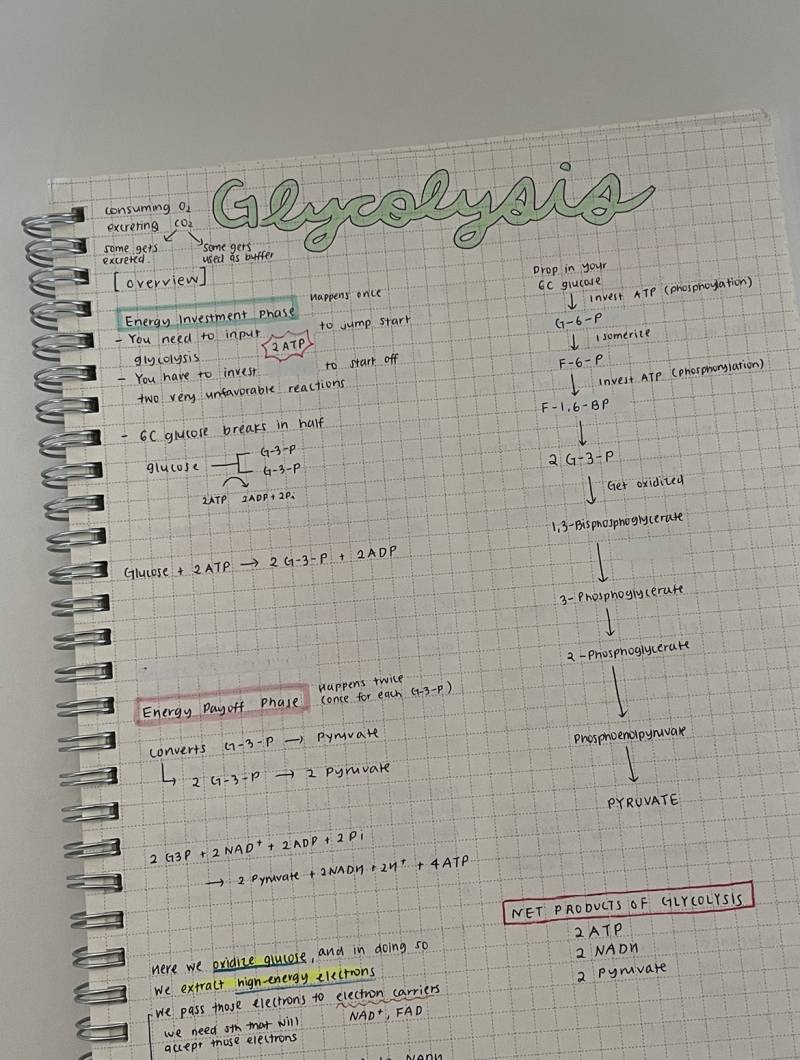 Glycolysis
consuming O2
excreting CO2
some gets excreted.
some gets used as buffer
[overview]
Energy Investment Phase
Happens once
- You need to input 2 ATP to jump start
glycolysis
- You have to invest 2 ATP to start off
two very unfavorable reactions
- 6C glucose breaks in half
glucose
G-3-P
G-3-P
2ATP 2ADP + 2Pi
Glucose + 2 ATP → 2 G-3-P + 2 ADP
Energy Payoff Phase
Happens twice
(once for each G-3-P)
converts G-3-P → Pyruvate
↳ 2 G-3-P → 2 Pyruvate
2 G3P + 2 NAD+ + 2 ADP + 2 Pi
→ 2 Pyruvate + 2NADH + 2H+ + 4 ATP
Here we oxidize glucose, and in doing so
we extract high-energy electrons
we pass those electrons to electron carriers
NAD+, FAD
we need sth that will
accept those electrons
NADH
Drop in your
6C glucose
↓ invest ATP (phosphoylation)
G-6-P
↓ isomerize
F-6-P
↓ invest ATP (phosphorylation)
F-1,6-BP
↓
2 G-3-P
↓ Get oxidized
1,3-Bisphosphoglycerate
↓
3-Phosphoglycerate
↓
2-Phosphoglycerate
↓
Phosphoenolpyruvate
↓
PYRUVATE
NET PRODUCTS OF GLYCOLYSIS
2 ATP
2 NADH
2 Pyruvate